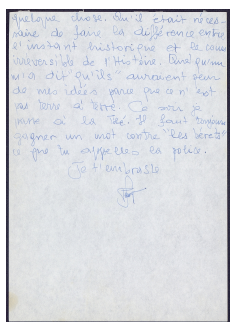 quelque chose. Qu'il était néces-
saire de faire la différence entre
l'instant historique et le cours
irréversible de l'Histoire. Quelqu'un
m'a dit "qu'ils" auraient peur
de mes idées parce que ce n'est
pas terre à terre. Ce soir je
passe à la Télé. Il faut toujours
gagner un mot contre "les verts"
ce que tu appelles la police.
Je t'embrasse